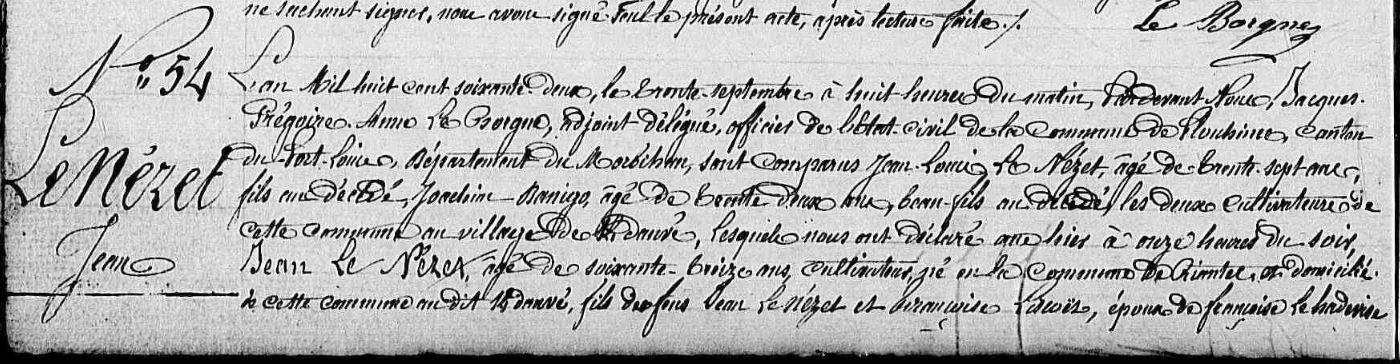 ne sachant signer, nous avons signé seul le présent acte, après lecture faite ./. Le Borgne
N° 54
L'an Mil huit cent soixante deux, le trente septembre à huit heures du matin, Pardevant Nous, Jacques
Grégoire Anne Le Borgne, adjoint délégué, officier de l'Etat civil de la Commune de Plouhinec, canton
du Port Louis, Département du Morbihan, sont comparus Jean Louis Le Nézet, âgé de trente sept ans,
fils au décédé, Joachim Danigo, âgé de trente deux ans, beau-fils au décédé, les deux cultivateurs de
cette commune au village de , lesquels nous ont déclaré que hier à onze heures du soir,
Jean Le Nézet, âgé de soixante-treize ans, cultivateur, né en la commune de , et domicilié
à cette commune au dit , fils de feus Jean Le Nézet et Françoise , époux de françoise
Le Nézet
Jean